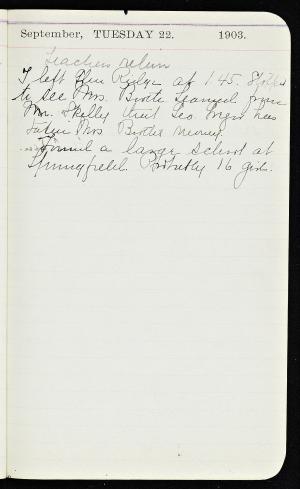 September, TUESDAY 22. 1903.
Teachers return
I left Glen Ridge at 1.45 Stopped
to see Mrs. Learned from
Mr. Skelly that Geo. has
taken Mrs
Found a large school at
Springfield. Probably 16 girls.